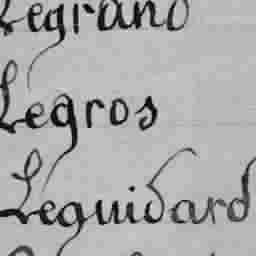 Legrand
Legros
Leguidard